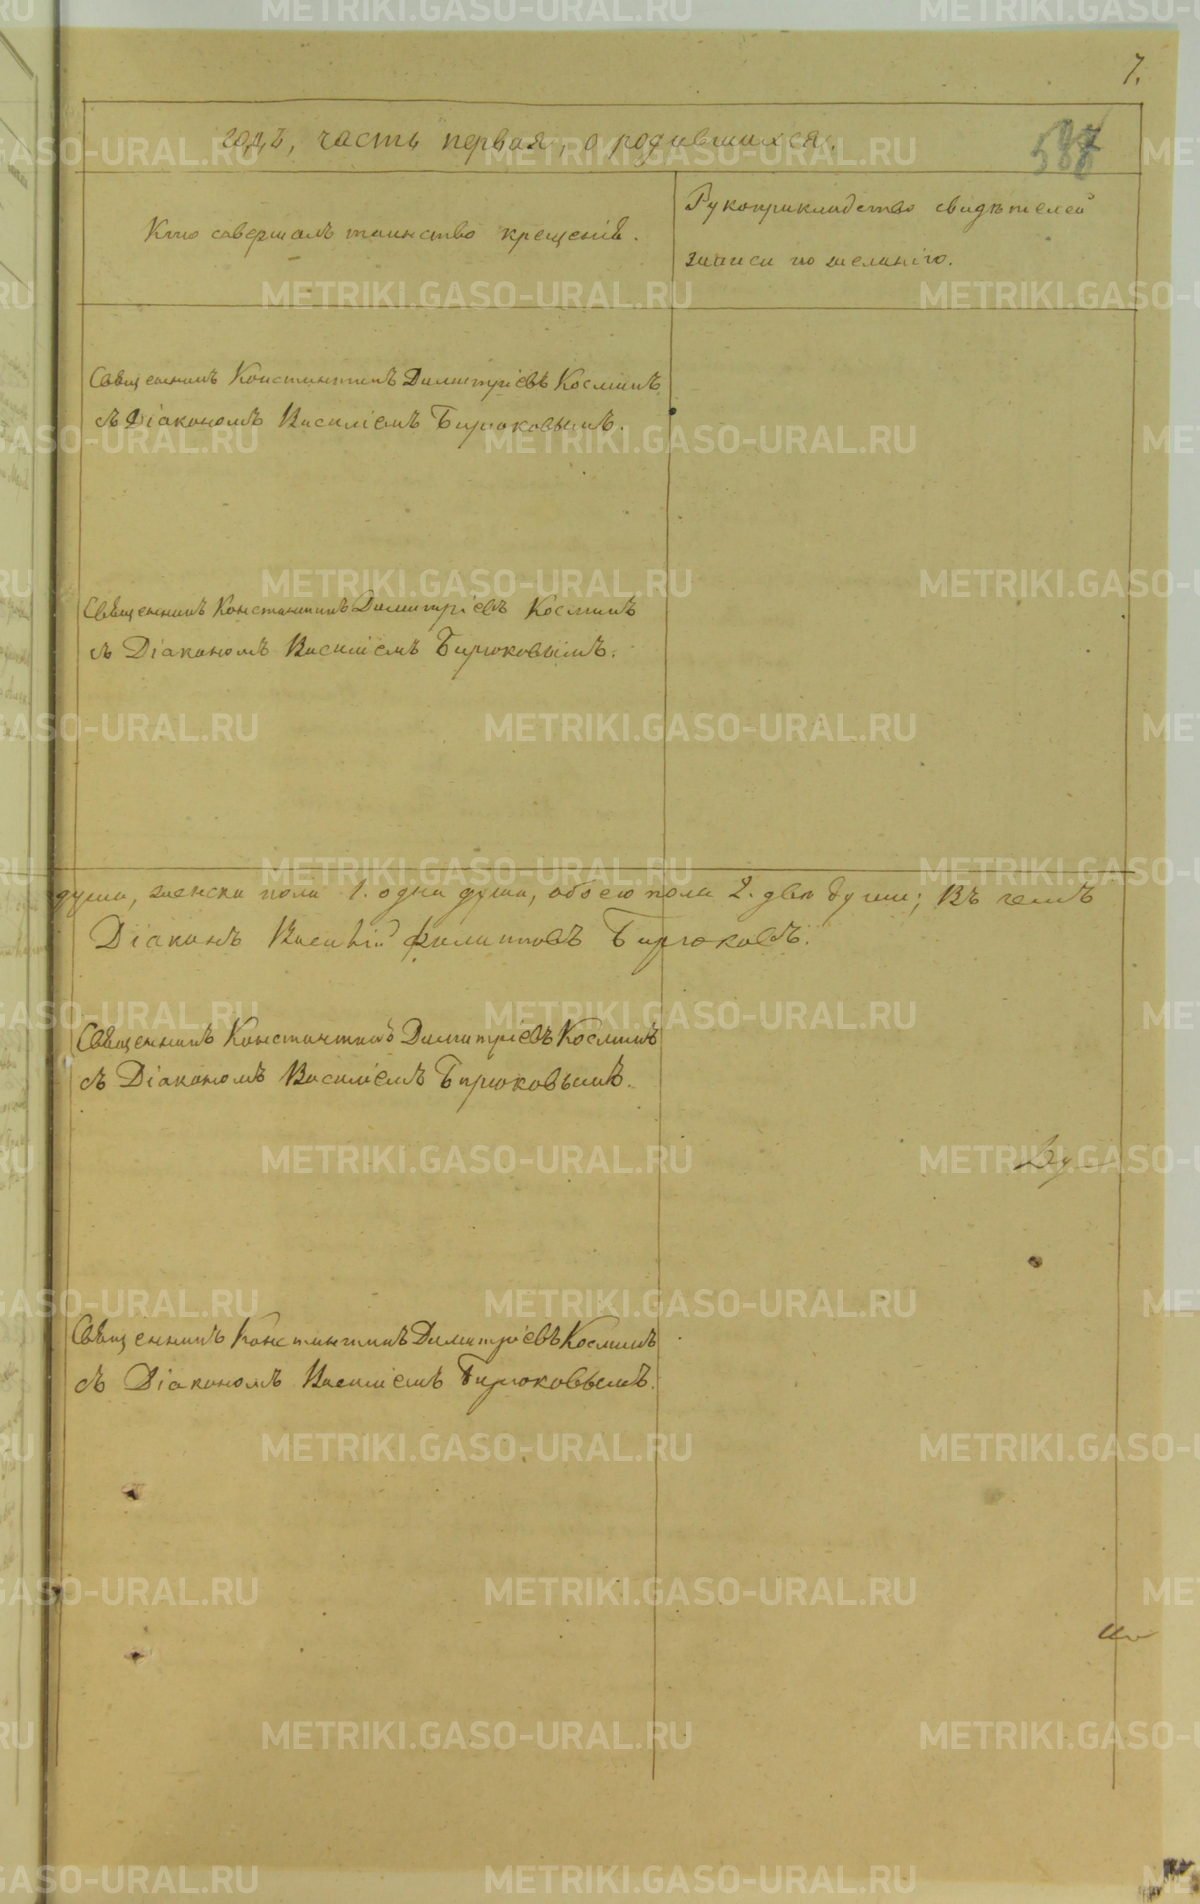 7.
587
годъ, часть первая, о родившихся.
Кто совершалъ таинство крещенія.
Рукоприкладство свидѣтелей
записи по желанію.
Священникъ Константинъ Димитріевъ Косминъ
съ Діакономъ Василіемъ Бирюковымъ.
Священникъ Константинъ Димитріевъ Косминъ
съ Діакономъ Василіемъ Бирюковымъ.
душа, женска пола 1. одна душа, обоего пола 2. двѣ души; Въ чемъ
Діаконъ Василій Филипповъ Бирюковъ.
Священникъ Константинъ Димитріевъ Косминъ
съ Діакономъ Василіемъ Бирюковымъ.
Священникъ Константинъ Димитріевъ Косминъ
съ Діакономъ Василіемъ Бирюковымъ.
METRIKI.GASO-URAL.RU